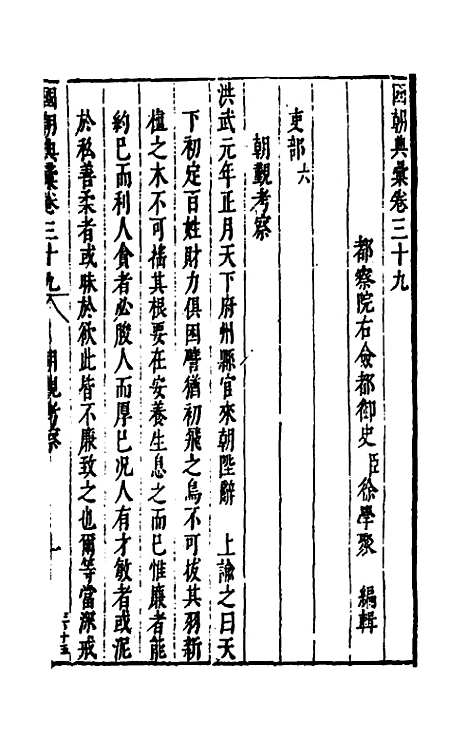 國朝典彙卷三十九
都察院右僉都御史臣徐學聚 編輯
吏部六
朝覲考察
洪武元年正月天下府州縣官來朝陛辭 上諭之曰天
下初定百姓財力俱困譬猶初飛之鳥不可拔其羽新
植之木不可搖其根要在安養生息之而已惟廉者能
約己而利人貪者必朘人而厚己況人有才敏者或泥
於私善柔者或昧於欲此皆不廉致之也爾等當深戒
國朝典彙卷三十九 朝覲考察